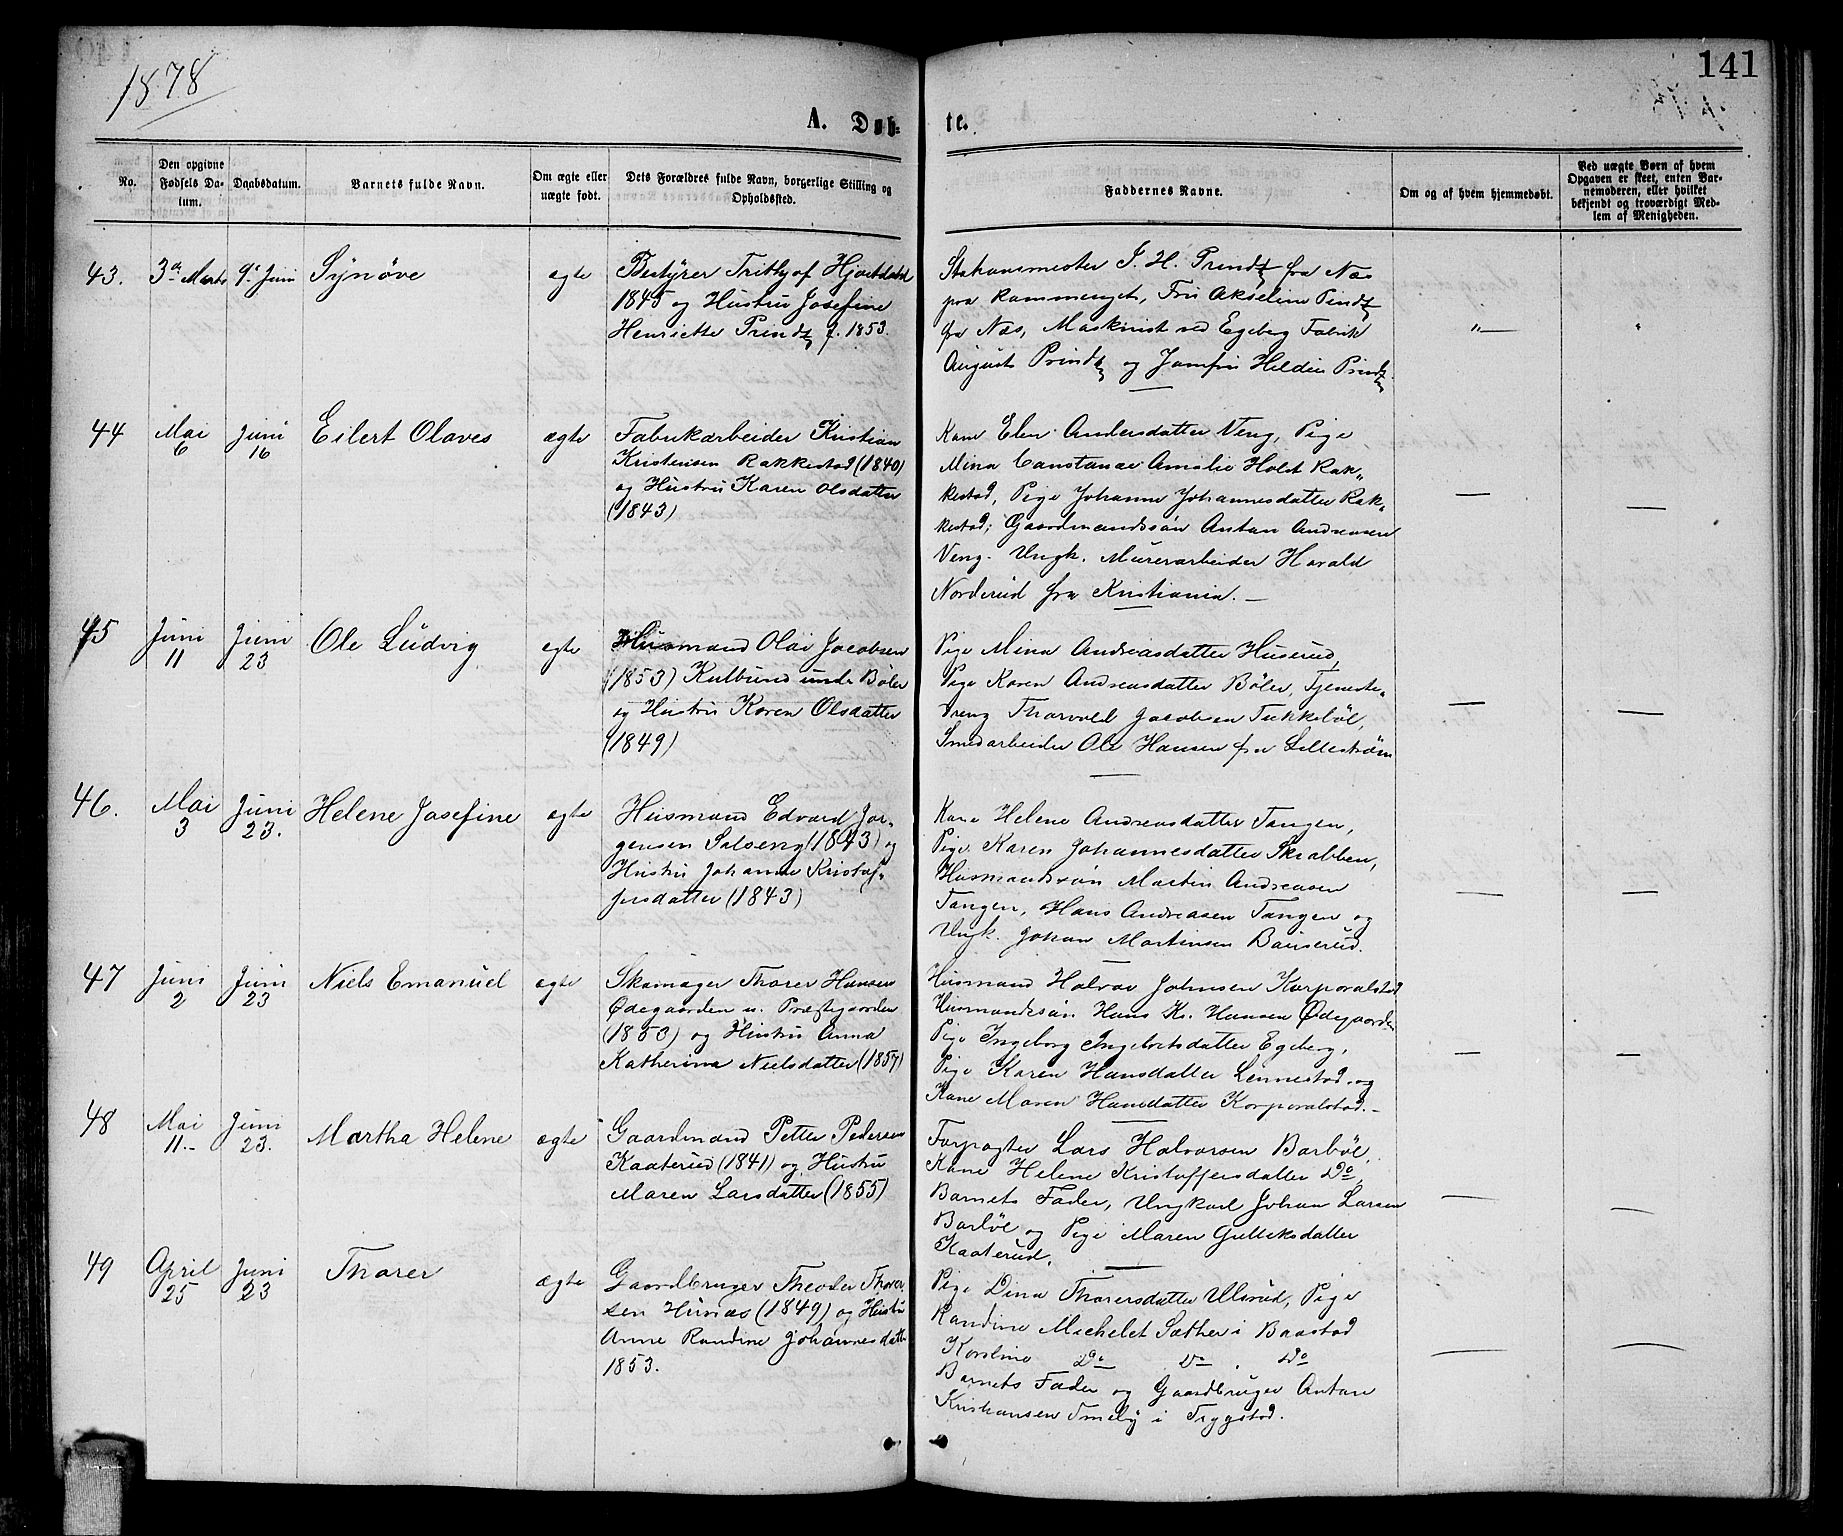 1878
141
A. Døb-
te.
No.
Den opgivne Fødsels Da-tum.
Daabsdatum.
Barnets fulde Navn.
Om ægte eller uægte født.
Dets Forældres fulde Navn, borgerlige Stilling og Opholdssted.
Faddernes Navne.
Om og af hvem hjemmedøbt.
Ved uægte Børn af hvem Opgaven er skeet, enten Bar-nemoderen, eller hvilket bekjendt og troværdigt Med-lem af Menigheden.
43. 9 Juni Synøve ægte
Bestyrer Trithjof
1845 og Hustru Josefine
Henriette Prindtz f. 1853.
Stationsmester J. H. Prindtz fra Næs
fra Næs, Maskinist ved Egeberg Fabrik
August Prindtz og Jomfru Prindtz
44 Mai 6 Juni 16 Eilert Olaves ægte
Fabrikarbeider Kristian
Kristensen Rakkestad (1840)
og Hustru Karen Olsdatter
(1843)
Kone Elen Andersdatter Veng, Pige
Mina Constanse Amalie Holst Rak-
kestad, Pige Johanne Johannesdatter Rak-
kestad; Gaardmandssøn Antan Andreasen
Veng. Ungk. Murerarbeider Harald
Norderud fra Kristiania. —
45 Juni 11 Juni 23 Ole Ludvig ægte
Husmand Olai Jacobsen
(1853) Kulbund under Bøler
og Hustru Karen Olsdatter
(1849)
Pige Mina Andreasdatter Huserud,
Pige Karen Andreasdatter Bøler, Tjeneste-
dreng Thorvald Jacobsen Tukkebøl,
Smedarbeider Ole Hansen fra Lillestrøm
46. Mai 3 Juni 23. Helene Josefine ægte
Husmand Edvard Jør-
gensen Søloeng (1843) og
Hustru Johanne Kristof-
fersdatter (1843)
Kone Helene Andreasdatter Tangen,
Pige Karen Johannesdatter Skrabben,
Husmandssøn Martin Andreasen
Tangen, Hans Andreasen Tangen og
Ungk. Johan Martinsen Bauserud.
47 Juni 2 Juni 23 Niels Emanuel ægte
Skomager Thorer Hansen
Ødegaarden u. Præstegaarden
(1853) og Hustru Anna
Katherina Nielsdatter (1857)
Husmand Halvor Johnsen Korporalstad
Husmandssøn Hans Kr. Hansen Ødegaarden
Pige Ingeborg Ingebretsdatter Egeberg,
Pige Karen Hansdatter Linnestad og
Kone Maren Hansdatter Korporalstad. —
48 Mai 11.- Juni 23. Martha Helene ægte
Gaardmand Petter Pedersen
Kaaterud (1841) og Hustru
Maren Larsdatter (1855)
Forpagter Lars Halvorsen Barbøl,
Kone Helene Kristoffersdatter Do,
Barnets Fader, Ungkarl Johan Larsen
Barbøl og Pige Maren Gulleksdatter
Kaaterud.
49 April 25 Juni 23 Thorer ægte
Gaardbruger Theodor Thorer-
sen Hunæs (1849) og Hustru
Anne Randine Johannesdatter
1853.
Pige Dina Thorersdatter Ulsrud, Pige
Randine Michelet Sæther i Baastad
Karoline Do Do Do
Barnets Fader og Gaardbruger Antan
Kristiansen i Trygstad.